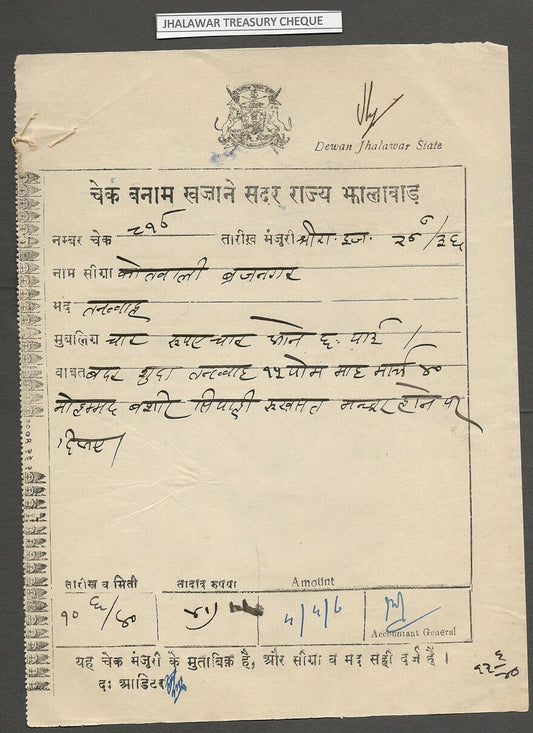 JHALAWAR TREASURY CHEQUE
Dewan Jhalawar State
चेक बनाम खज़ाने सदर राज्य झालावाड़
नम्बर चेक तारीख़ मंजुरी
नाम सीग़ा कोतवाली ब्रजनगर
मद तनख्वाह
मुबलिग़ चार रुपए चार आने छ: पाई
बाबत तनख्वाह माह मार्च ४०
मोहम्मद बशीर सिपाही रुखसत मन्जूर होने पर
तारीख़ व मिती तादाद रुपया Amount
१० ६/४० ४।) 4/4/6
Accountant General
यह चेक मंजुरी के मुताबिक़ है, और सीग़ा व मद सही दर्ज है ।
द: आडिटर
१२ ६/४०